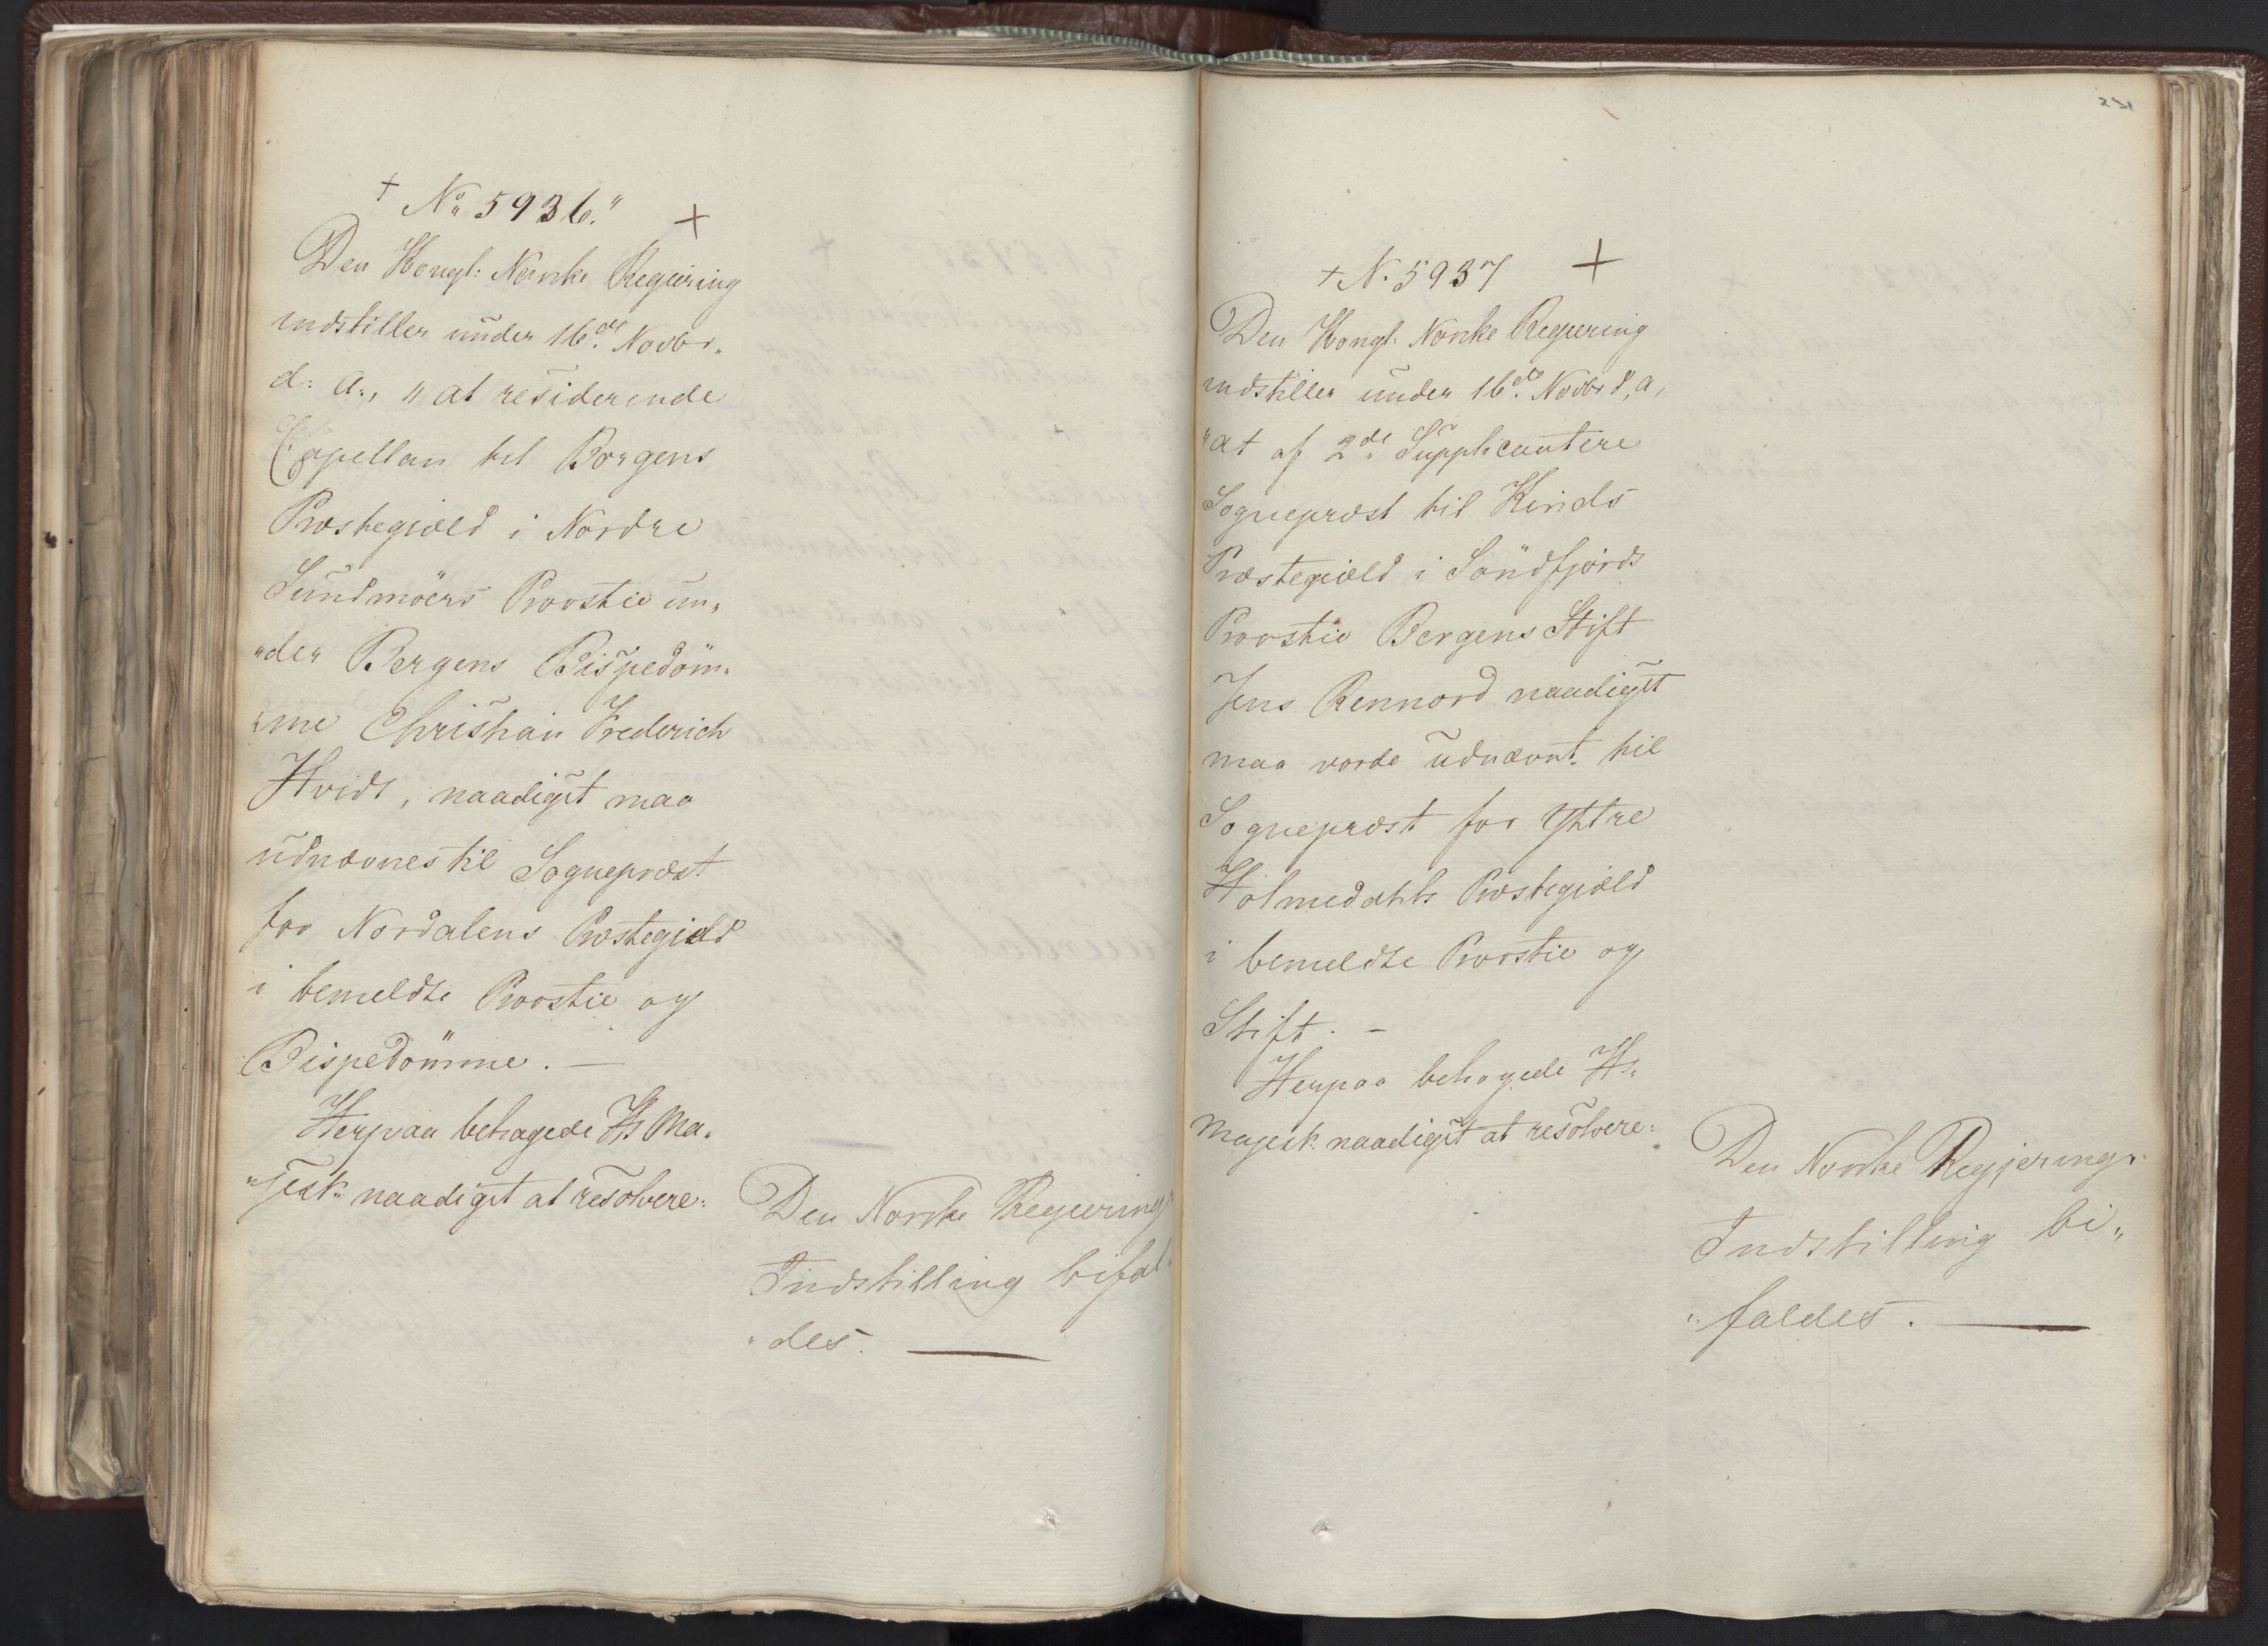 + No. 5936."
+
Den Kongl: Norske Regiering
indstiller under 16de. Novbr.
d: A:, "at residerende
Capellan til Borgens
Præstegiæld i Nordre
Sundmöers Provstie un„
„der Bergens Bispedöm„
„me Christian Frederich
Hvidt, naadigst maa
udnævnes til Sognepræst
for Nordalens Præstegjæld
i bemeldte Provstie og
Bispedömme. —
Herpaa behagede Hs Ma„
„jest: naadigst at resolvere:
Den Norske Regierings
Indstilling bifal„
„des. —
231
+ N. 5937 +
Den Kongl: Norske Regiering
indstiller under 16de. Novbr d. A,
"at af 2de. Supplicantere
Sognepræst til Kinds
Præstegiæld i Söndfjords
Provstie Bergens Stift
Jens Rennord naadigst
maa vorde udnævnt til
Sognepræst for Yttre
Holmedahls Præstegiæld
i bemeldte Provstie og
Stift. —
Herpaa behagede Hs.
Majest: naadigst at resolvere:
Den Norske Regjerings
Indstilling bi„
„faldes. —